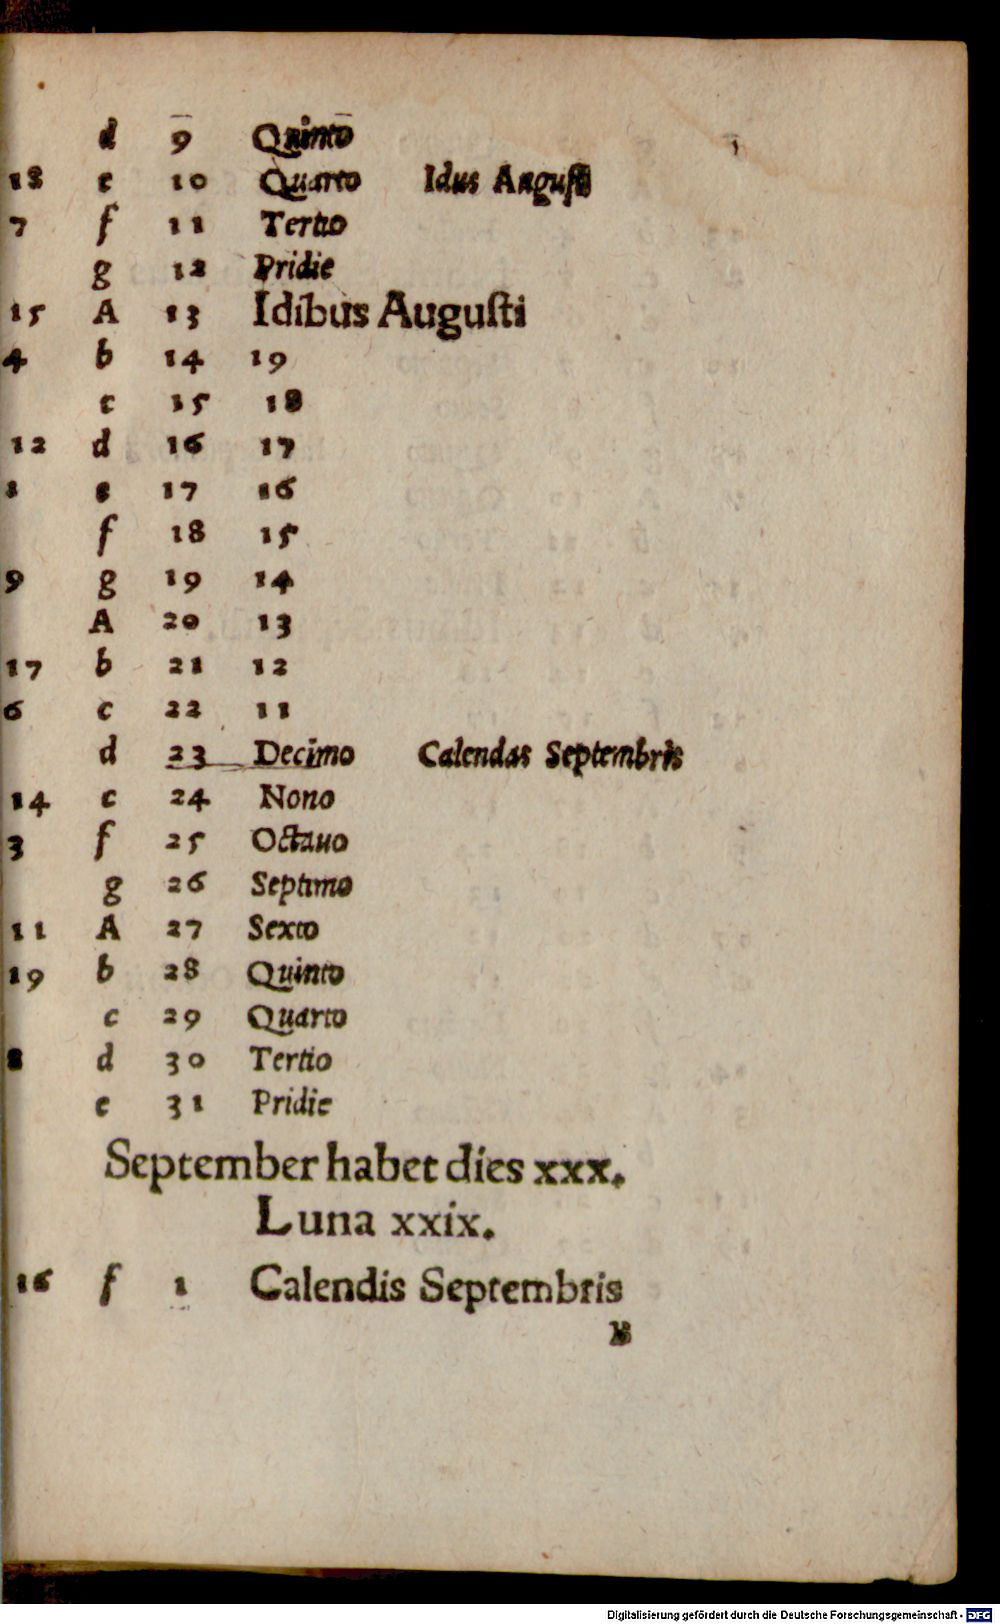 d 9 Quinto
18 e 10 Quarto Idus Augusti
7 f 11 Tertio
g 12 Pridie
15 A 13 Idibus Augusti
4 b 14 19
c 15 18
12 d 16 17
1 e 17 16
f 18 15
9 g 19 14
A 20 13
17 b 21 12
6 c 22 11
d 23 Decimo Calendas Septembris
14 e 24 Nono
3 f 25 Octauo
g 26 Septimo
11 A 27 Sexto
19 b 28 Quinto
c 29 Quarto
8 d 30 Tertio
e 31 Pridie
September habet dies xxx.
Luna xxix.
16 f 1 Calendis Septembris
Digitalisierung gefördert durch die Deutsche Forschungsgemeinschaft - DFG